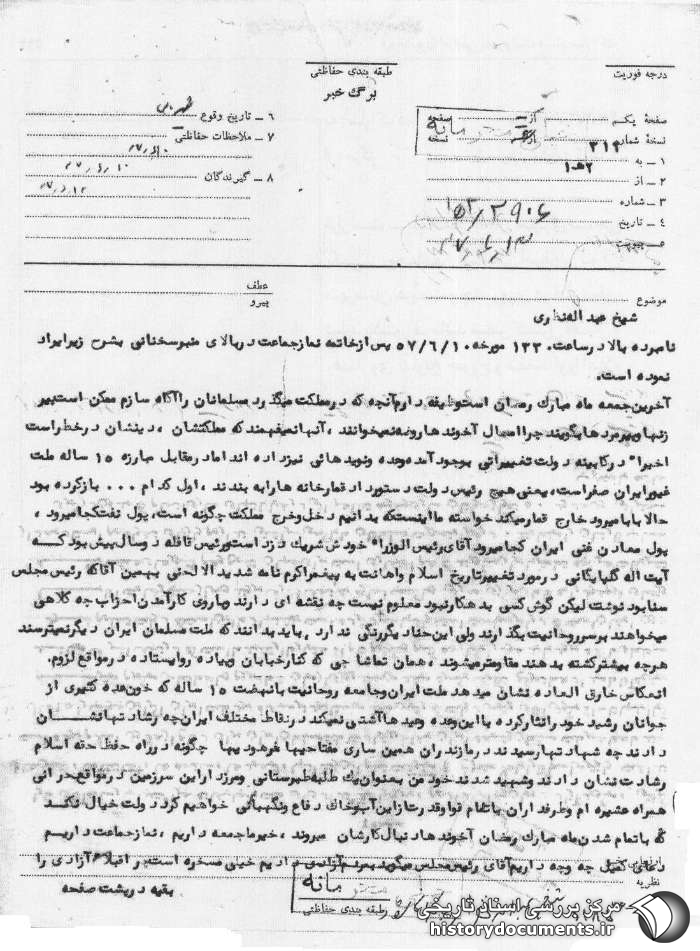 درجه فوریت
طبقه بندی حفاظتی
برگ خبر
صفحهٔ یکم از صفحه
نسخهٔ شماره ۳۱۲ از نسخه
۱ ـ به ۱۵۲
۲ ـ از
۳ ـ شماره
۴ ـ تاریخ
۶ ـ تاریخ وقوع
۷ ـ ملاحظات حفاظتی
۸ ـ گیرندگان
موضوع
عطف
پیرو
شیخ عبد اله نظاری
نامبرده بالا در ساعت ۱۳۲۰ مورخه ۵۷/۶/۱۰ پس از خاتمه نماز جماعت در بالای منبر سخنانی بشرح زیر ایراد
نموده است.
آخرین جمعه ماه مبارک رمضان است وظیفه دارم آنچه که در مملکت میگذرد مسلمانان را آگاه سازم ممکن است پیر
زنها و پیرمردها بگویند چرا امسال آخوندها روضه نمیخوانند ، آنها نمیفهمند که مملکتشان ، دینشان در خطر است
اخیرا" در کابینه دولت تغییراتی بوجود آمده وعده و نویدهائی نیز داده اند اما در مقابل مبارزه ۱۵ ساله ملت
غیور ایران صفر است، یعنی هیچ رئیس دولت دستور داد قمارخانه ها را به بندند ، اول کدام ... باز کرده بود
حالا بابا میرود خارج قمار میکند خواسته ما اینستکه بدانیم دخل و خرج مملکت چگونه است، پول نفت کجا میرود ،
پول معادن غنی ایران کجا میرود آقای رئیس الوزرا" خودش شریک دزد است و رئیس قافله دو سال پیش بود که
آیت اله گلپایگانی در مورد تغییر تاریخ اسلام و اهانت به پیغمبر اکرم نامه شدید الا لحنی بهمین آقا که رئیس مجلس
سنا بود نوشت لیکن گوش کسی بدهکار نبود معلوم نیست چه نقشه ای دارند و با روی کار آمدن احزاب چه کلاهی
میخواهند بر سر روحانیت بگذارند ولی این حنا دیگر رنگی ندارد ، باید بدانند که ملت مسلمان ایران دیگر نمیترسند
هرچه بیشتر کشته بدهند مقاومتر میشوند ، همان تماشا چی که کنار خیابان و پیاده رو ایستاده در مواقع لزوم،
انعکاس خارق العاده نشان میدهد ملت ایران و جامعه روحانیت با نهضت ۱۵ ساله که خون عده کثیری از
جوانان رشید خود را نثار کرده با این وعده وعیدها آشتی نمیکند در نقاط مختلف ایران چه رشادتها نشان
دادند چه شهادتها رسیدند در مازندران همین ساری مفتاحیها فرهودیها چگونه در راه حفظ حقه اسلام
رشادت نشان دادند و شهید شدند خود من بعنوان یک طلبه طبرستانی و مرزدار این سرزمین در مواقع بحرانی
همراه عشیره ام و طرفداران با تمام قوا و قدرت از این آب و خاک دفاع و نگهبانی خواهیم کرد دولت خیال نکند
که با تمام شدن ماه مبارک رمضان آخوندها دنبال کارشان میروند ، خیر ما جمعه داریم ، نماز جماعت داریم
دعای کمیل چه وچه داریم آقای رئیس مجلس میگوید بمردم آزادی دادیم خیلی مسخره است
نظریه
بقیه در پشت صفحه
طبقه بندی حفاظتی
مرکز بررسی اسناد تاریخی
historydocuments.ir